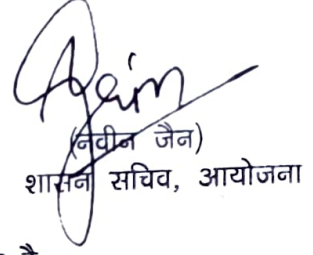 (नवीन जैन)
शासन सचिव, आयोजना